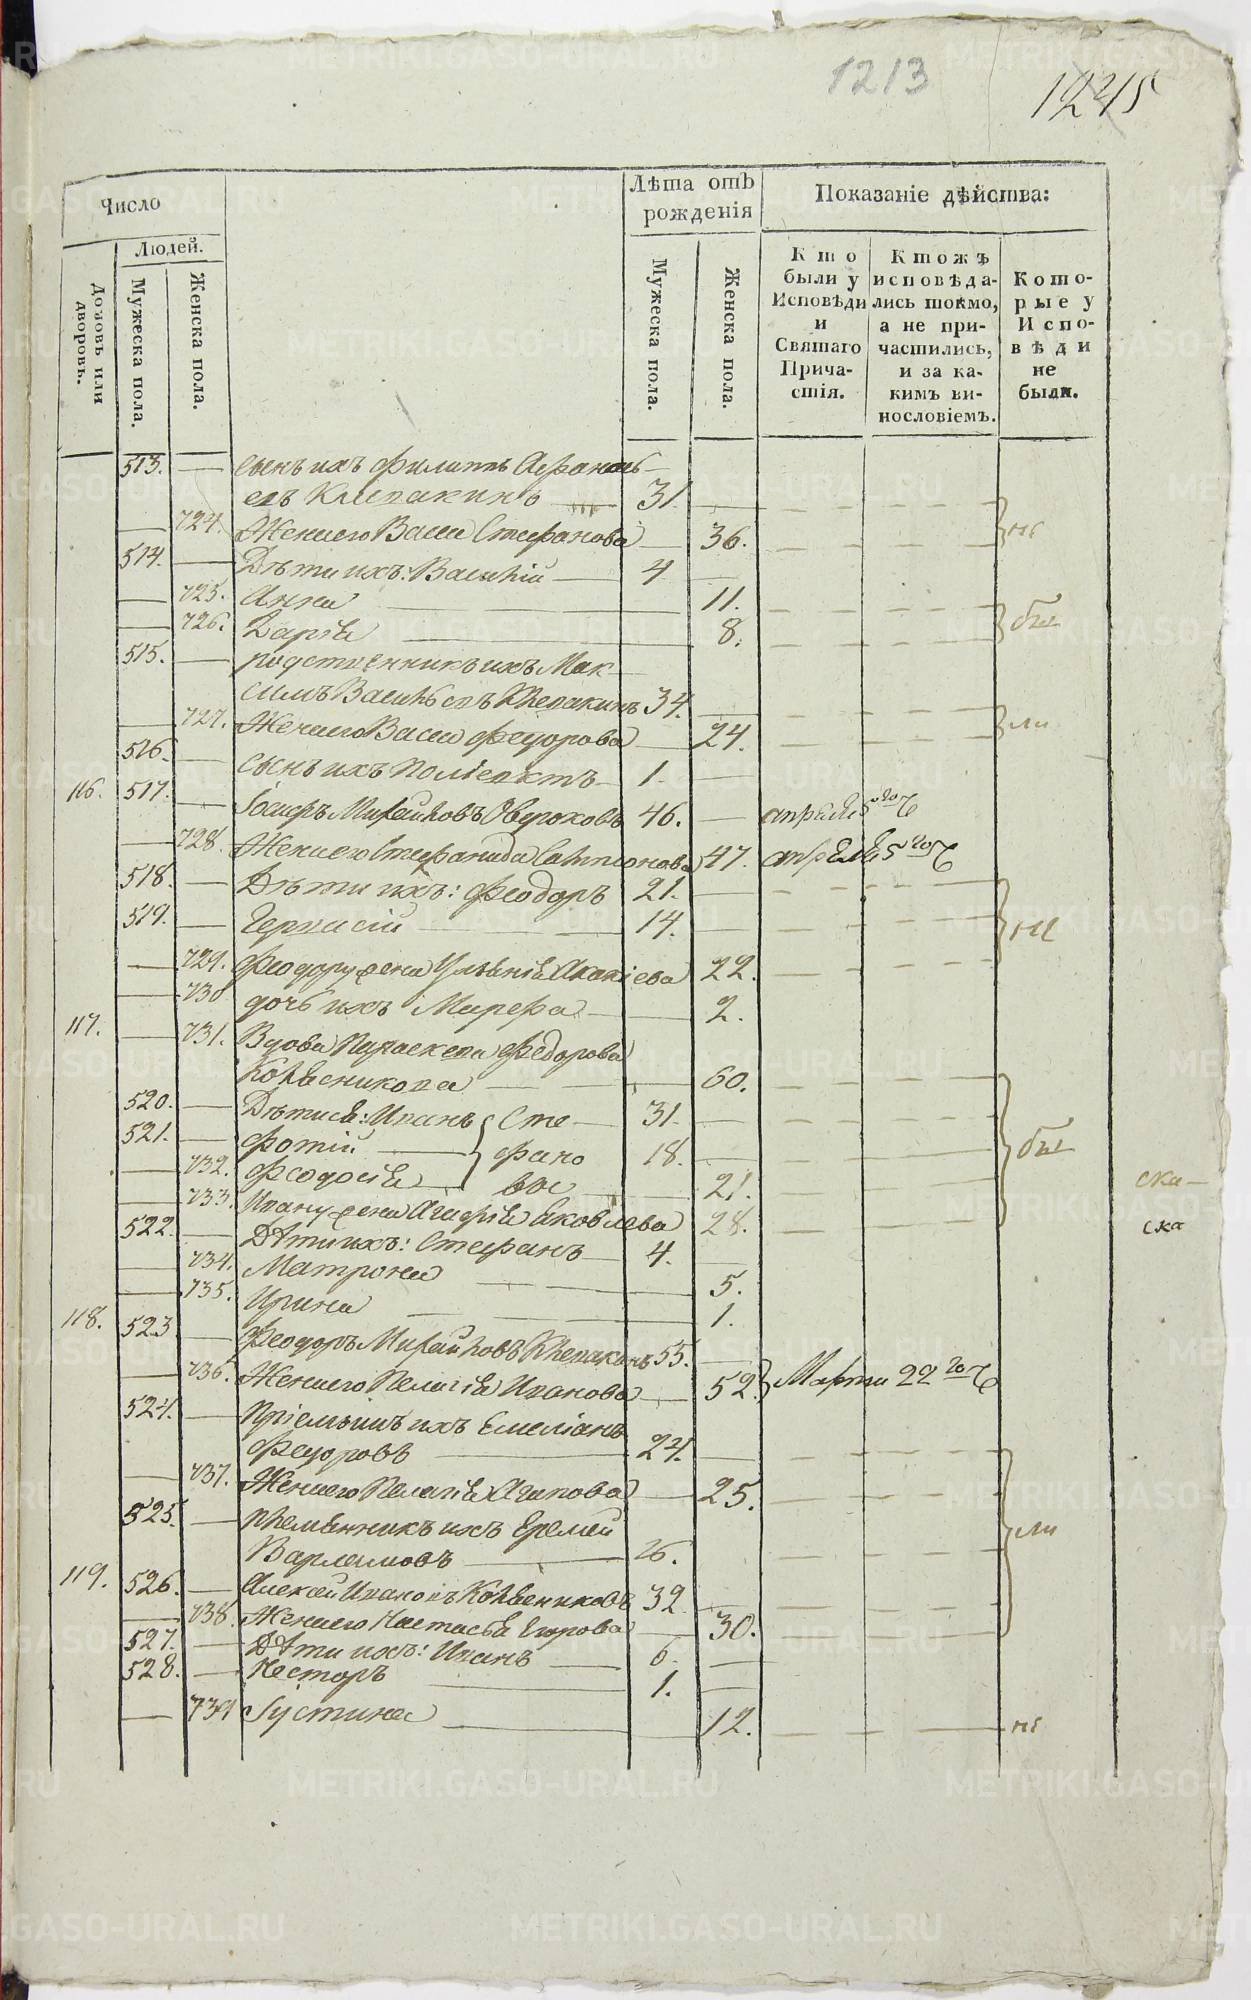 1213
1215
Число
Людей.
Домовъ или дворовъ.
Мужеска пола.
Женска пола.
Лѣта отъ
рожденія
Мужеска пола.
Женска пола.
Показаніе дѣйства:
Кто
были у
Исповѣди
и
Святаго
Прича-
стія.
Ктожъ
исповѣда-
лись токмо,
а не при-
частились,
и за ка-
кимъ ви-
нословіемъ.
Кото-
рые у
Испо-
вѣди
не
были.
513. — сынъ ихъ Филиппъ Афанась-
евъ Клепакинъ — 31. —
— 724. Жена его Васса Стефанова — 36. не
514. — Дѣти ихъ: Василій — 4 —
— 725. Анна — 11.
— 726. Дарія — 8. бы
515. — родственникъ ихъ Мак-
симъ Васильевъ Клепакинъ 34. —
— 727. Жена его Васса Феодорова — 24. ли
516. — сынъ ихъ Поліевктъ 1. —
116. 517. — Іосифъ Михайловъ 46. — апреля 5го ч
— 728. Жена его Стефанида Сампсонова 47. апреля 5го ч
518. — Дѣти ихъ: Феодоръ 21. —
519. — Герасій — 14. — не
— 729. Феодору жена Ульянія Акакіева 22.
— 730 дочь ихъ Марфа — 2.
117. — 731. Вдова Параскева Федорова
Колесникова — 60.
520. — Дѣти ея: Иванъ } Сте- 31. —
521. — Фотій — } фано 18. — бы
— 732. Феодосія — } вы — 21.
ска-
— 733. Ивану жена Агафія Яковлева 28.
ска
522. — Дѣти ихъ: Стефанъ — 4. —
— 734. Матрона — 5.
— 735. Ирина — 1.
118. 523 — Феодоръ Михайловъ Клепакинъ 55. —
— 736. Жена его Пелагія Иванова — 52. } Марта 22го ч
524. — Пріемышъ ихъ Емеліанъ
Федоровъ — 24. —
— 737. Жена его Пелагія Агапова — 25.
525. — племянникъ ихъ Еремей ли
Варламовъ — 26.
119. 526. — Алексей Ивановъ Колесниковъ 32 —
— 738. Жена его Настасья Егорова — 30.
527. — Дѣти ихъ: Иванъ — 6. —
528. — Несторъ — 1. —
— 739 Іустина — 12. не